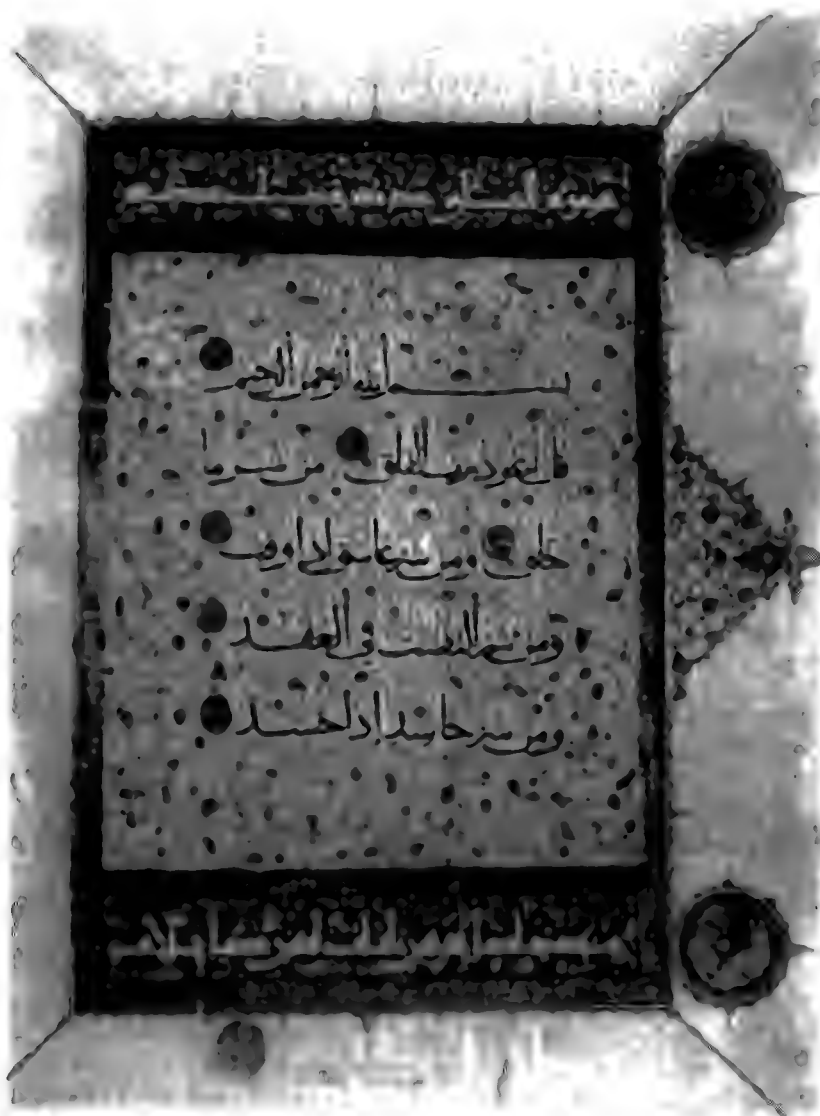 سورة الفلق
بسم الله الرحمن الرحيم
قل اعوذ برب الفلق من شر ما
خلق ومن شر غاسق اذا وقب
ومن شر النفثت في العقد
ومن شر حاسد اذا حسد